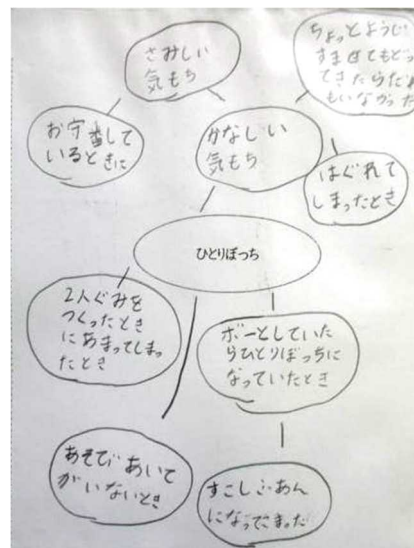 さみしい
気もち
ちょっとようじ
すませてもどっ
てきたらだれ
もいなかった
お守番して
いるときに
かなしい
気もち
はぐれて
しまったとき
ひとりぼっち
2人ぐみを
つくったとき
にあまってしまっ
たとき
ボーとしていた
らひとりぼっちに
なっていたとき
あそびあいて
がいないとき
すこしふあん
になってしまった